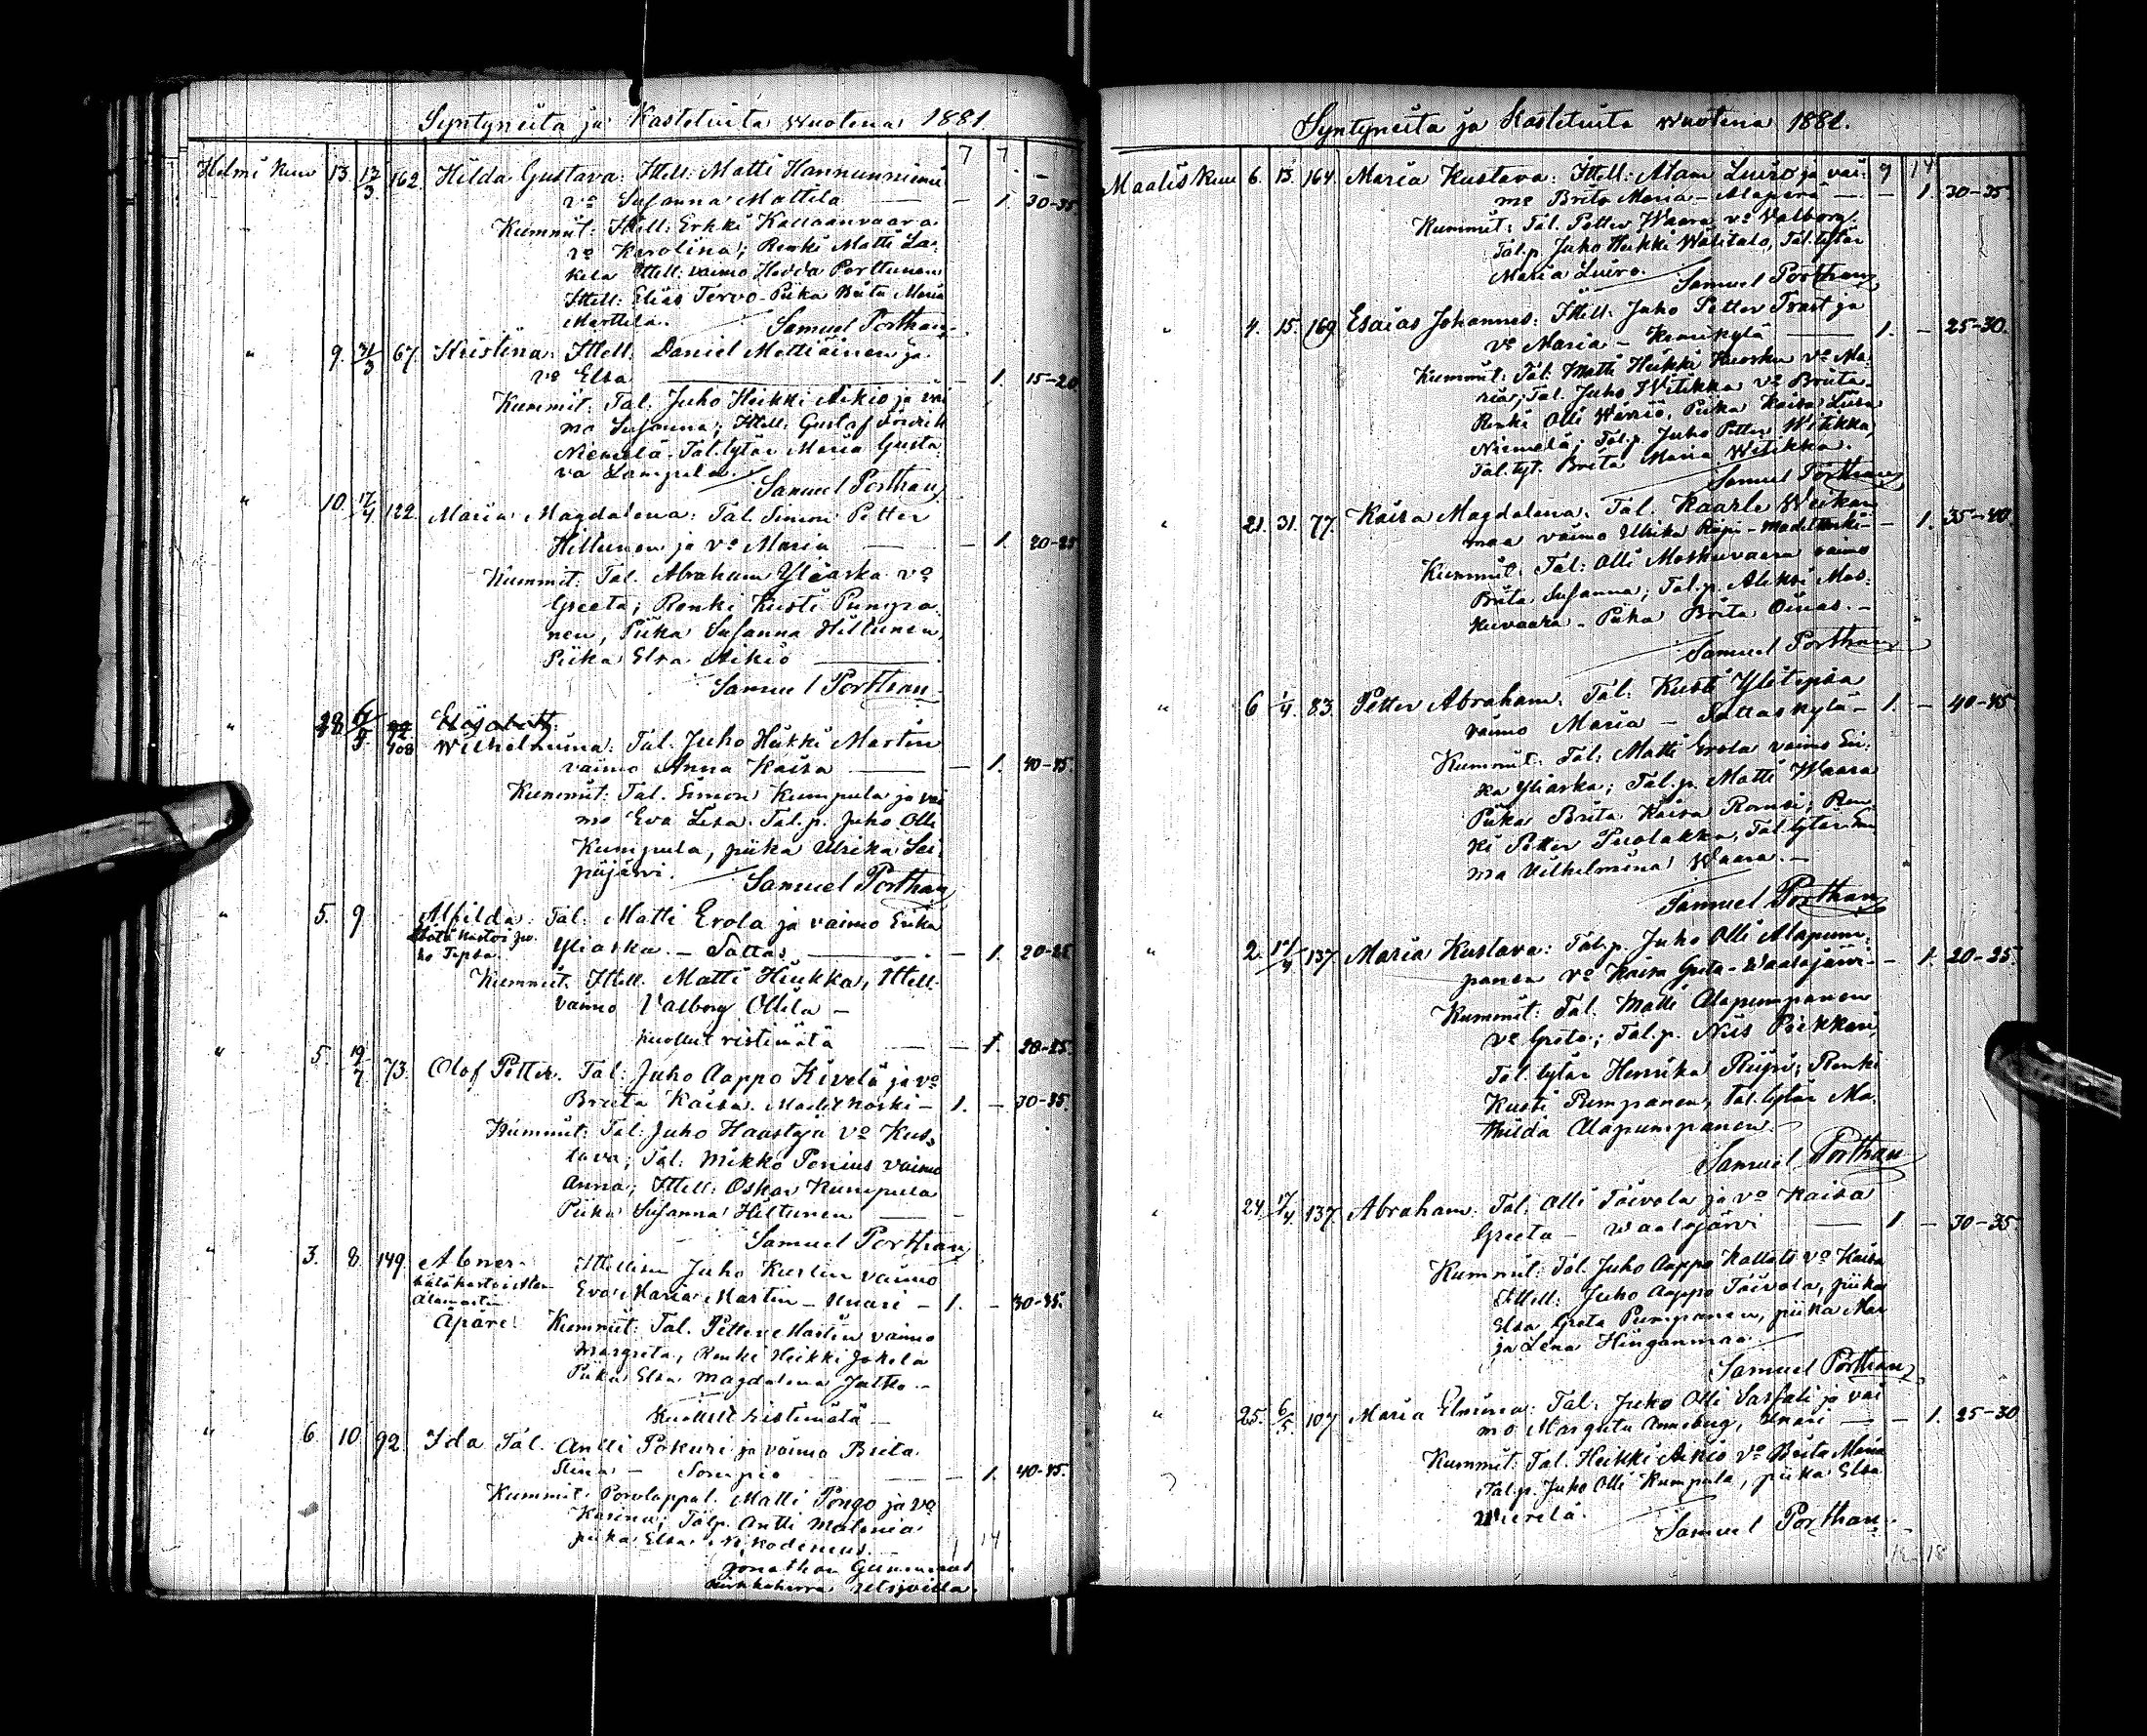 Syntyneitä ja Kastetuita wuotena 1881.
7 7. -
Helmi kuu 13. 13/3 162. Hilda Gustava: Ittell: Matti Hannunniemi
vo Susanna Mattila — — 1. 30-35
Kummit: Ittell: Erkki Kallaanvaara
vo Karolina; Renki Matti La-
kela Ittell: vaimo Hedda Porttunen
Ittell: Elias Tervo - Piika Brita Maria
Marttila. Samuel Porthan
" 9. 31/3 67. Kristina: Ittell: Daniel Mettiäinen ja
vo Elsa — — 1. 15-20
Kummit: Tal: Juho Heikki Aikio ja vai
mo Susanna; Ittell: Gustaf
Niemelä - Tal. tytär Maria Gusta
va Lampela. Samuel Porthan
" 10. 17/4 122. Maria Magdalena: Tal. Simon Petter
Hiltunen ja vo Maria — — 1. 20-25
Kummit: Tal. Abraham Yliaska vo
Greeta; Renki Kusti Pumpa
nen, Piika Susanna Hiltunen,
Piika Elsa Aikio —
Samuel Porthan
" 28. 6/5 108 Elisabett
Wilhelmiina: Tal. Juho Heikki Martin
vaimo Anna Kaisa — — 1. 40-45.
Kummit: Tal. Simon Kumpula ja vai
mo Eva Lisa. Tal.p. Juho Olli
Kumpula, piika Ulrika Sei-
päjärvi. Samuel Porthan
" 5. 9 Alfilda: Tal: Matti Erola ja vaimo Erika
Yliaska. - Sattas — — 1. 20-25
Kummit. Ittell. Matti Heikka, Ittell.
vaimo Valborg Ollila -
kuollut ristimätä — — 1. 20-25.
" 5. 19/7 73. Olof Petter. Tal: Juho Aappo Kivelä ja vo
Briita Kaisa. Madetkoski - 1. - 30-35.
Kummit: Tal: Juho Haastaja vo Kus-
tava; Tal: Mikko Ponius vaimo
Anna; Ittell: Oskar Kumpula
Piika Susanna Hiltunen —
Samuel Porthan
" 3. 8. 149. Abner. Ittellisen Juho Kustin vaimo
Eva Maria Martin - Unari - 1. - 30-35.
Apäre! Kummit: Tal. Petter Martin vaimo
Margreta, Renki Heikki Jokela
Piika Elsa Magdalena Jatko. -
Kuollut ristimätä -
" 6. 10. 92. Ida Tal. Antti Pokuri ja vaimo Brita
Stina - Sompio — — 1. 40-45.
Kummit: Porolappal. Matti Pongo ja vo
Karina; Talp. Antti Malenia
piika Elsa Nikodemus. -
1 14
Jonathan Gummerus
kirkkoherra Utsjoella.
Syntyneitä ja Kastetuita wuotena 1881.
9 14
Maalis kuu 6. 13. 164. Maria Kustava: Ittell: Adam Luiro ja vai-
mo Brita Maria - Alaperä — - 1. 30-35.
Kummit: Tal. Petter Waara vo Valborg.
Tal.p. Juho Heikki Wälitalo, Tal. tytär
Maria Luiro. Samuel Porthan
" 4. 15. 169. Esaias Johannes: Ittell: Juho Petter Trast ja
vo Maria - Kemikylä — 1. - 25-30.
Kummit: Tal: Matti Heikki Kuosku vo Ma-
ria; Tal. Juho Witikka vo Briita.
Renki Olli Warrio, Piika Kaisa Liisa
Niemelä; Tal.p. Juho Petter Witikka,
Tal. tyt. Brita Maria Witikka.
Samuel Porthan
" 21. 31. 77. Kaisa Magdalena. Tal. Kaarle Weikan
maa vaimo Ulrika Riipi - Madetkoski - - 1. 35-40.
Kummit: Tal: Olli Moskuvaara vaimo
Brita Susanna; Tal.p. Aleksi Mos-
kuvaara - Piika Brita Oinas. -
Samuel Porthan
" 6 1/4. 83. Petter Abraham. Tal: Kusti Ylitepsa
vaimo Maria - Sattaskylä - 1. - 40-45
Kummit: Tal: Matti Erola vaimo Eri-
ka Yliaska; Tal.p. Matti Waara
Piika Brita Kaisa Romsi; Ren
ki Petter Puolakka, Tal. tytär Em
ma Vilhelmina Waara. -
Samuel Porthan
" 2. 17/4 137 Maria Kustava: Tal.p. Juho Olli Alapum-
panen vo Kaisa Greta - Waalajärvi - - 1. 20-25.
Kummit: Tal. Matti Alapumpanen
vo Greta; Tal.p. Niis Poikkari,
Tal. tytär Henrika Riipi; Renki
Kusti Pumpanen, Tal. tytär Ma-
thilda Alapumpanen. -
Samuel Porthan
" 24. 17/4. 137. Abraham: Tal. Olli Toivola ja vo Kaisa
Greeta - Waalajärvi — 1 - 30-35.
Kummit: Tal. Juho Aappo Kallats vo Kaisa
Ittell: Juho Aappo Toivola, piika
Elsa Greta Pumpanen, piika Mar
ja Lena Hinganmaa.
Samuel Porthan
" 25. 6/5. 107 Maria Elmina: Tal: Juho Olli Sassali ja vai
mo Margreta Anneberg, Unari — - 1. 25-30
Kummit: Tal. Heikki Aikio vo Brita Maria
Tal.p. Juho Olli Kumpula, piika Elsa
Wierelä.
Samuel Porthan.
12 18